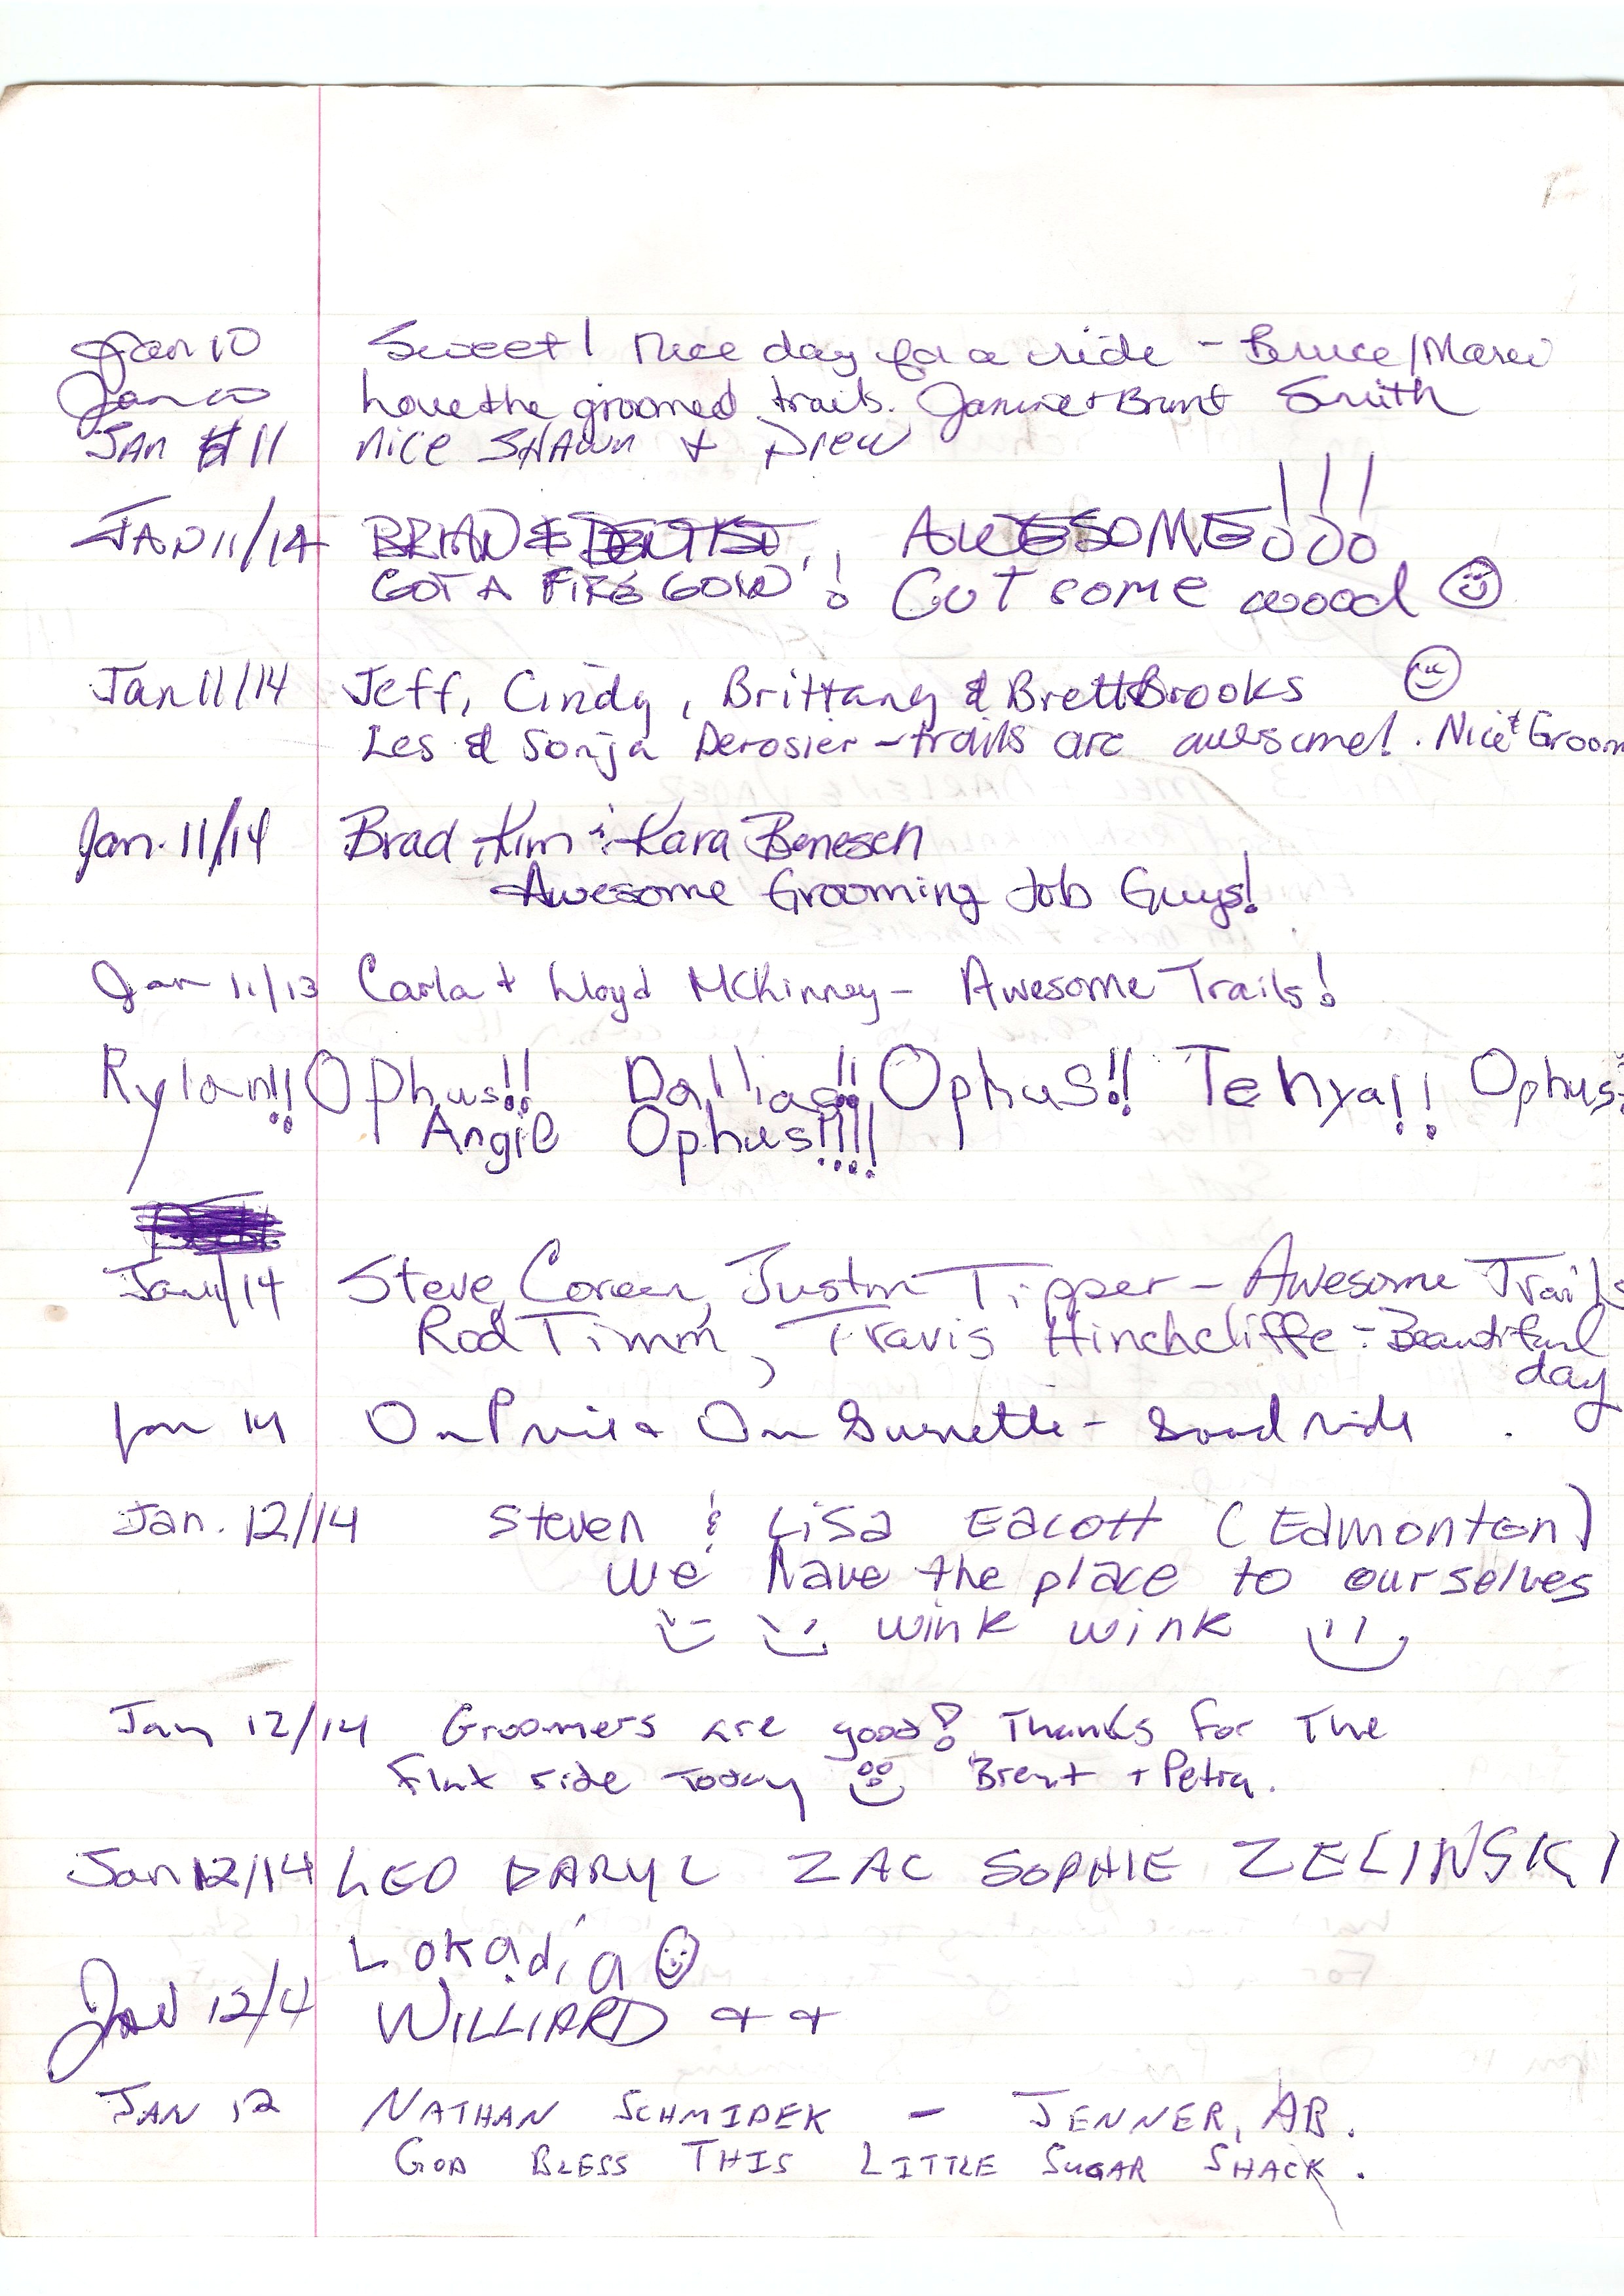 Jan 10 Sweet! Nice day for a ride - Bruce/
Jan 10 love the groomed trails. Janine + Brent Smith
JAN 11 NICE SHAWN + Drew
JAN 11/14 BRIAN & AWESOME!!!
GOT A FIRE GOIN'! Cut some wood
Jan 11/14 Jeff, Cindy, Brittany & Brett Brooks
Les & Sonja Derosier - trails are awesome!. Nice Groom
Jan. 11/14 Brad, Kim & Kara Benesch
Awesome Grooming Job Guys!
Jan 11/13 Carla + Lloyd McKinney - Awesome Trails!
Rylan!! Ophus!! Dallas!! Ophus!! Tehya!! Ophus
Angie Ophus!!!!
Jan 11/14 Steve, Coreen, Justin Tipper - Awesome Trails
Rod Timm, Travis Hinchcliffe - Beautiful
day
Jan 14 - Good ride
Jan. 12/14 Steven & Lisa Eacott (Edmonton)
We have the place to ourselves
wink wink
Jan 12/14 Groomers are good! Thanks for The
flat ride today Brent + Petra.
Jan 12/14 LEO DARYL ZAC SOPHIE ZELINSKI
Lokadia
JAN 12/4 WILLIARD + +
JAN 12 NATHAN SCHMIDEK - JENNER, AB.
GOD BLESS THIS LITTLE SUGAR SHACK.